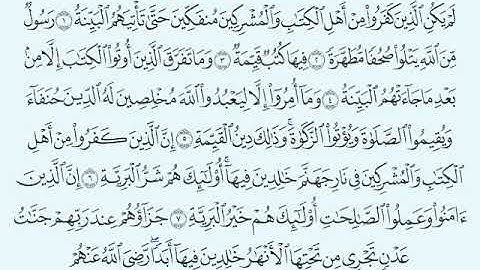 لَمْ يَكُنِ ٱلَّذِينَ كَفَرُوا۟ مِنْ أَهْلِ ٱلْكِتَٰبِ وَٱلْمُشْرِكِينَ مُنفَكِّينَ حَتَّىٰ تَأْتِيَهُمُ ٱلْبَيِّنَةُ ١ رَسُولٌ
مِّنَ ٱللَّهِ يَتْلُوا۟ صُحُفًا مُّطَهَّرَةً ٢ فِيهَا كُتُبٌ قَيِّمَةٌ ٣ وَمَا تَفَرَّقَ ٱلَّذِينَ أُوتُوا۟ ٱلْكِتَٰبَ إِلَّا مِنۢ
بَعْدِ مَا جَآءَتْهُمُ ٱلْبَيِّنَةُ ٤ وَمَآ أُمِرُوٓا۟ إِلَّا لِيَعْبُدُوا۟ ٱللَّهَ مُخْلِصِينَ لَهُ ٱلدِّينَ حُنَفَآءَ
وَيُقِيمُوا۟ ٱلصَّلَوٰةَ وَيُؤْتُوا۟ ٱلزَّكَوٰةَ ۚ وَذَٰلِكَ دِينُ ٱلْقَيِّمَةِ ٥ إِنَّ ٱلَّذِينَ كَفَرُوا۟ مِنْ أَهْلِ
ٱلْكِتَٰبِ وَٱلْمُشْرِكِينَ فِى نَارِ جَهَنَّمَ خَٰلِدِينَ فِيهَآ ۚ أُو۟لَٰٓئِكَ هُمْ شَرُّ ٱلْبَرِيَّةِ ٦ إِنَّ ٱلَّذِينَ
ءَامَنُوا۟ وَعَمِلُوا۟ ٱلصَّٰلِحَٰتِ أُو۟لَٰٓئِكَ هُمْ خَيْرُ ٱلْبَرِيَّةِ ٧ جَزَآؤُهُمْ عِندَ رَبِّهِمْ جَنَّٰتُ
عَدْنٍ تَجْرِى مِن تَحْتِهَا ٱلْأَنْهَٰرُ خَٰلِدِينَ فِيهَآ أَبَدًا ۖ رَّضِىَ ٱللَّهُ عَنْهُمْ